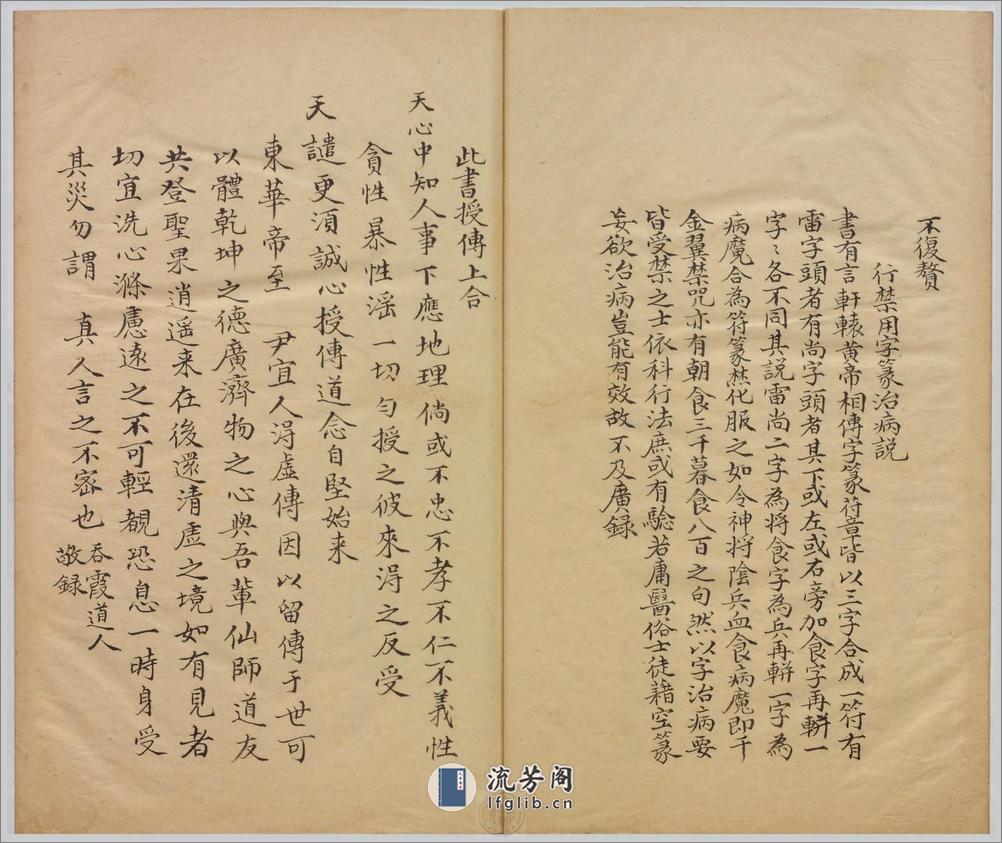 不復贅
行禁用字篆治病説
書有言軒轅黄帝相傳字篆符章皆以三字合成一符有
雷字頭者有尚字頭者其下或左或右旁加食字再軿一
字〻各不同其説雷尚二字為將食字為兵再軿一字為
病魔合為符篆焚化服之如令神將陰兵血食病魔即千
金翼禁咒亦有朝食三千暮食八百之句然以字治病要
皆受禁之士依科行法庶或有驗若庸醫俗士徒藉空篆
妄欲治病豈能有效故不及廣録
此書授傳上合
天心中知人事下應地理倘或不忠不孝不仁不義性
貪性暴性滛一切勻授之彼來淂之反受
天譴更須誠心授傳道念自堅始来
東華帝至 尹宜人淂虛傳因以留傳于世可
以體乾坤之德廣濟物之心與吾軰仙師道友
共登聖果逍遥来在後還清虛之境如有見者
切宜洗心滌慮遠之不可輕覩恐息一時身受
其災勿謂 真人言之不宻也 吞霞道人
敬録
流芳阁
lfglib.cn